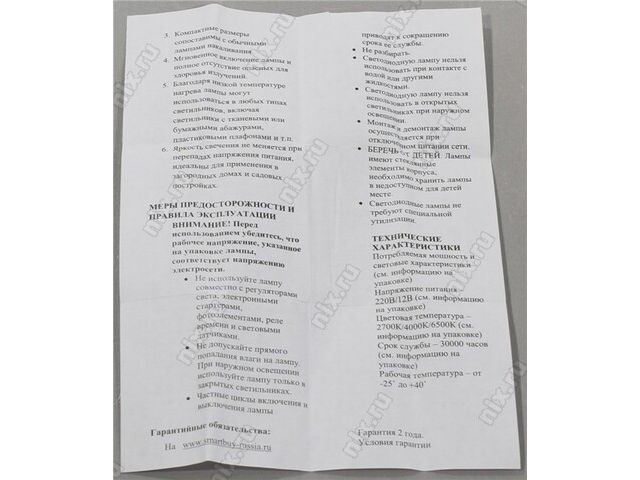 3. Компактные размеры
сопоставимы с обычными
лампами накаливания.
4. Мгновенное включение лампы и
полное отсутствие опасных для
здоровья излучений.
5. Благодаря низкой температуре
нагрева лампы могут
использоваться в любых типах
светильников, включая
светильники с тканевыми или
бумажными абажурами,
пластиковыми плафонами и т.п.
6. Яркость свечения не меняется при
перепадах напряжения питания,
идеальны для применения в
загородных домах и садовых
постройках.
МЕРЫ ПРЕДОСТОРОЖНОСТИ И
ПРАВИЛА ЭКСПЛУАТАЦИИ
ВНИМАНИЕ! Перед
использованием убедитесь, что
рабочее напряжение, указанное
на упаковке лампы,
соответствует напряжению
электросети.
• Не используйте лампу
совместно с регуляторами
света, электронными
стартерами,
фотоэлементами, реле
времени и световыми
датчиками.
• Не допускайте прямого
попадания влаги на лампу.
При наружном освещении
используйте лампу только в
закрытых светильниках.
• Частные циклы включения и
выключения лампы
Гарантийные обязательства:
На www.smartbuy-russia.ru
приводят к сокращению
срока ее службы.
• Не разбирать.
• Светодиодную лампу нельзя
использовать при контакте с
водой или другими
жидкостями.
• Светодиодную лампу нельзя
использовать в открытых
светильниках при наружном
освещении.
• Монтаж и демонтаж лампы
осуществляется при
отключенном питании сети.
• БЕРЕЧЬ ОТ ДЕТЕЙ. Лампы
имеют стеклянные
элементы корпуса,
необходимо хранить лампы
в недоступном для детей
месте.
• Светодиодные лампы не
требуют специальной
утилизации.
ТЕХНИЧЕСКИЕ
ХАРАКТЕРИСТИКИ
Потребляемая мощность и
световые характеристики
(см. информацию на
упаковке)
Напряжение питания –
220В/12В (см. информацию
на упаковке)
Цветовая температура –
2700K/4000K/6500K (см.
информацию на упаковке)
Срок службы – 30000 часов
(см. информацию на
упаковке)
Рабочая температура – от
-25˚ до +40˚
Гарантия 2 года.
Условия гарантии
nix.ru